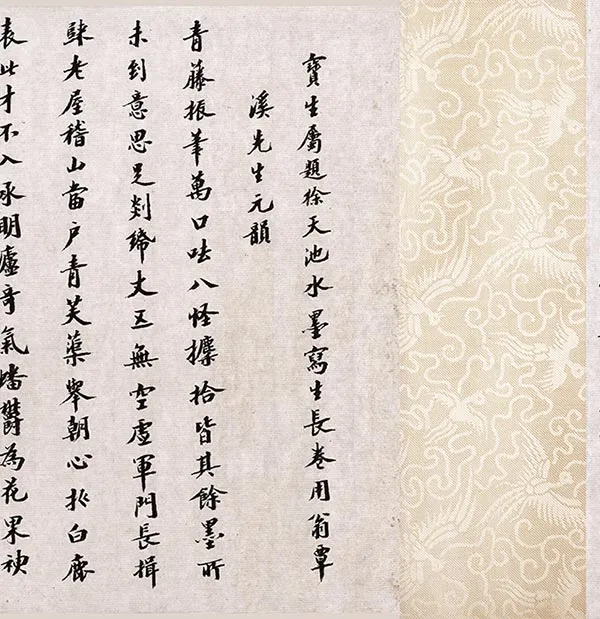 寶生屬題徐天池水墨寫生長卷用翁覃
溪先生元韻
青藤振筆萬口呿八怪攗拾皆其餘墨所
未到意思足剡絺丈五無空虛軍門長揖
歸老屋稽山當戶青芙蕖舉朝心折白鹿
表此才不入承明廬奇氣蟠鬱為花果